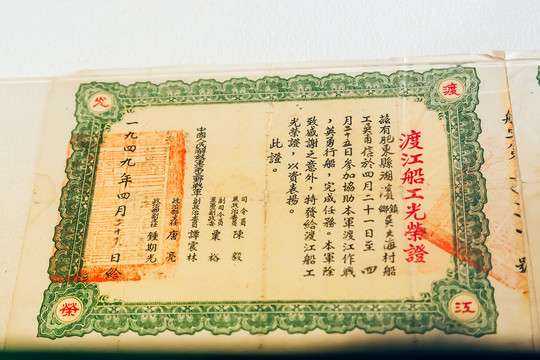 渡江船工光榮證
茲有肥東縣湖濱鄉鎮吳大海村船
工吳甫信於四月二十一日至四
月二十五日參加協助本軍渡江作戰
,英勇行船,完成任務。本軍除
致感謝之意外,特發給渡江船工
光榮證,以資表揚。
此證。
司令員
兼政治委員 陳毅
副司令員
兼第二副政委 粟裕
副政治委員 譚震林
政治部主任 唐亮
政治部副主任 鍾期光
一九四九年四月 日給
光
渡
榮
江
號